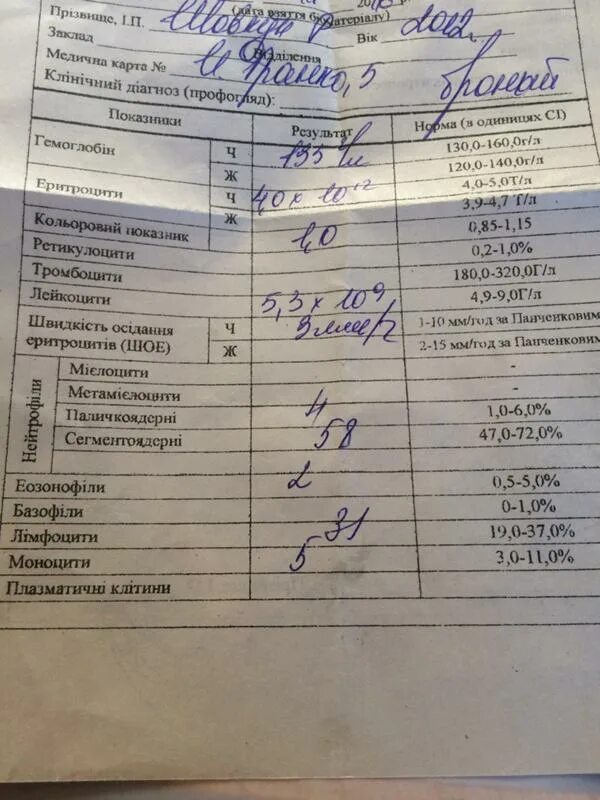 (дата взяття біоматеріалу)
Прізвище, І.П. Шовкун Р
Заклад Відділення Вік 2012
Медична карта № И Франко, 5
Клінічний діагноз (профогляд):
Показники Результат Норма (в одиницях СІ)
Гемоглобін Ч 133 130,0-160,0г/л
Ж 120,0-140,0г/л
Еритроцити Ч 4,0 х 10¹² 4,0-5,0Т/л
Ж 3,9-4,7 Т/л
Кольоровий показник 1,0 0,85-1,15
Ретикулоцити 0,2-1,0%
Тромбоцити 180,0-320,0Г/л
Лейкоцити 5,3 х 10⁹ 4,9-9,0Г/л
Швидкість осідання еритроцитів (ШОЕ) Ч 3мм/г 1-10 мм/год за Панченковим
Ж 2-15 мм/год за Панченковим
Нейтрофіли
Мієлоцити -
Метамієлоцити -
Паличкоядерні 4 1,0-6,0%
Сегментоядерні 58 47,0-72,0%
Еозонофіли 2 0,5-5,0%
Базофіли 0-1,0%
Лімфоцити 31 19,0-37,0%
Моноцити 5 3,0-11,0%
Плазматичні клітини